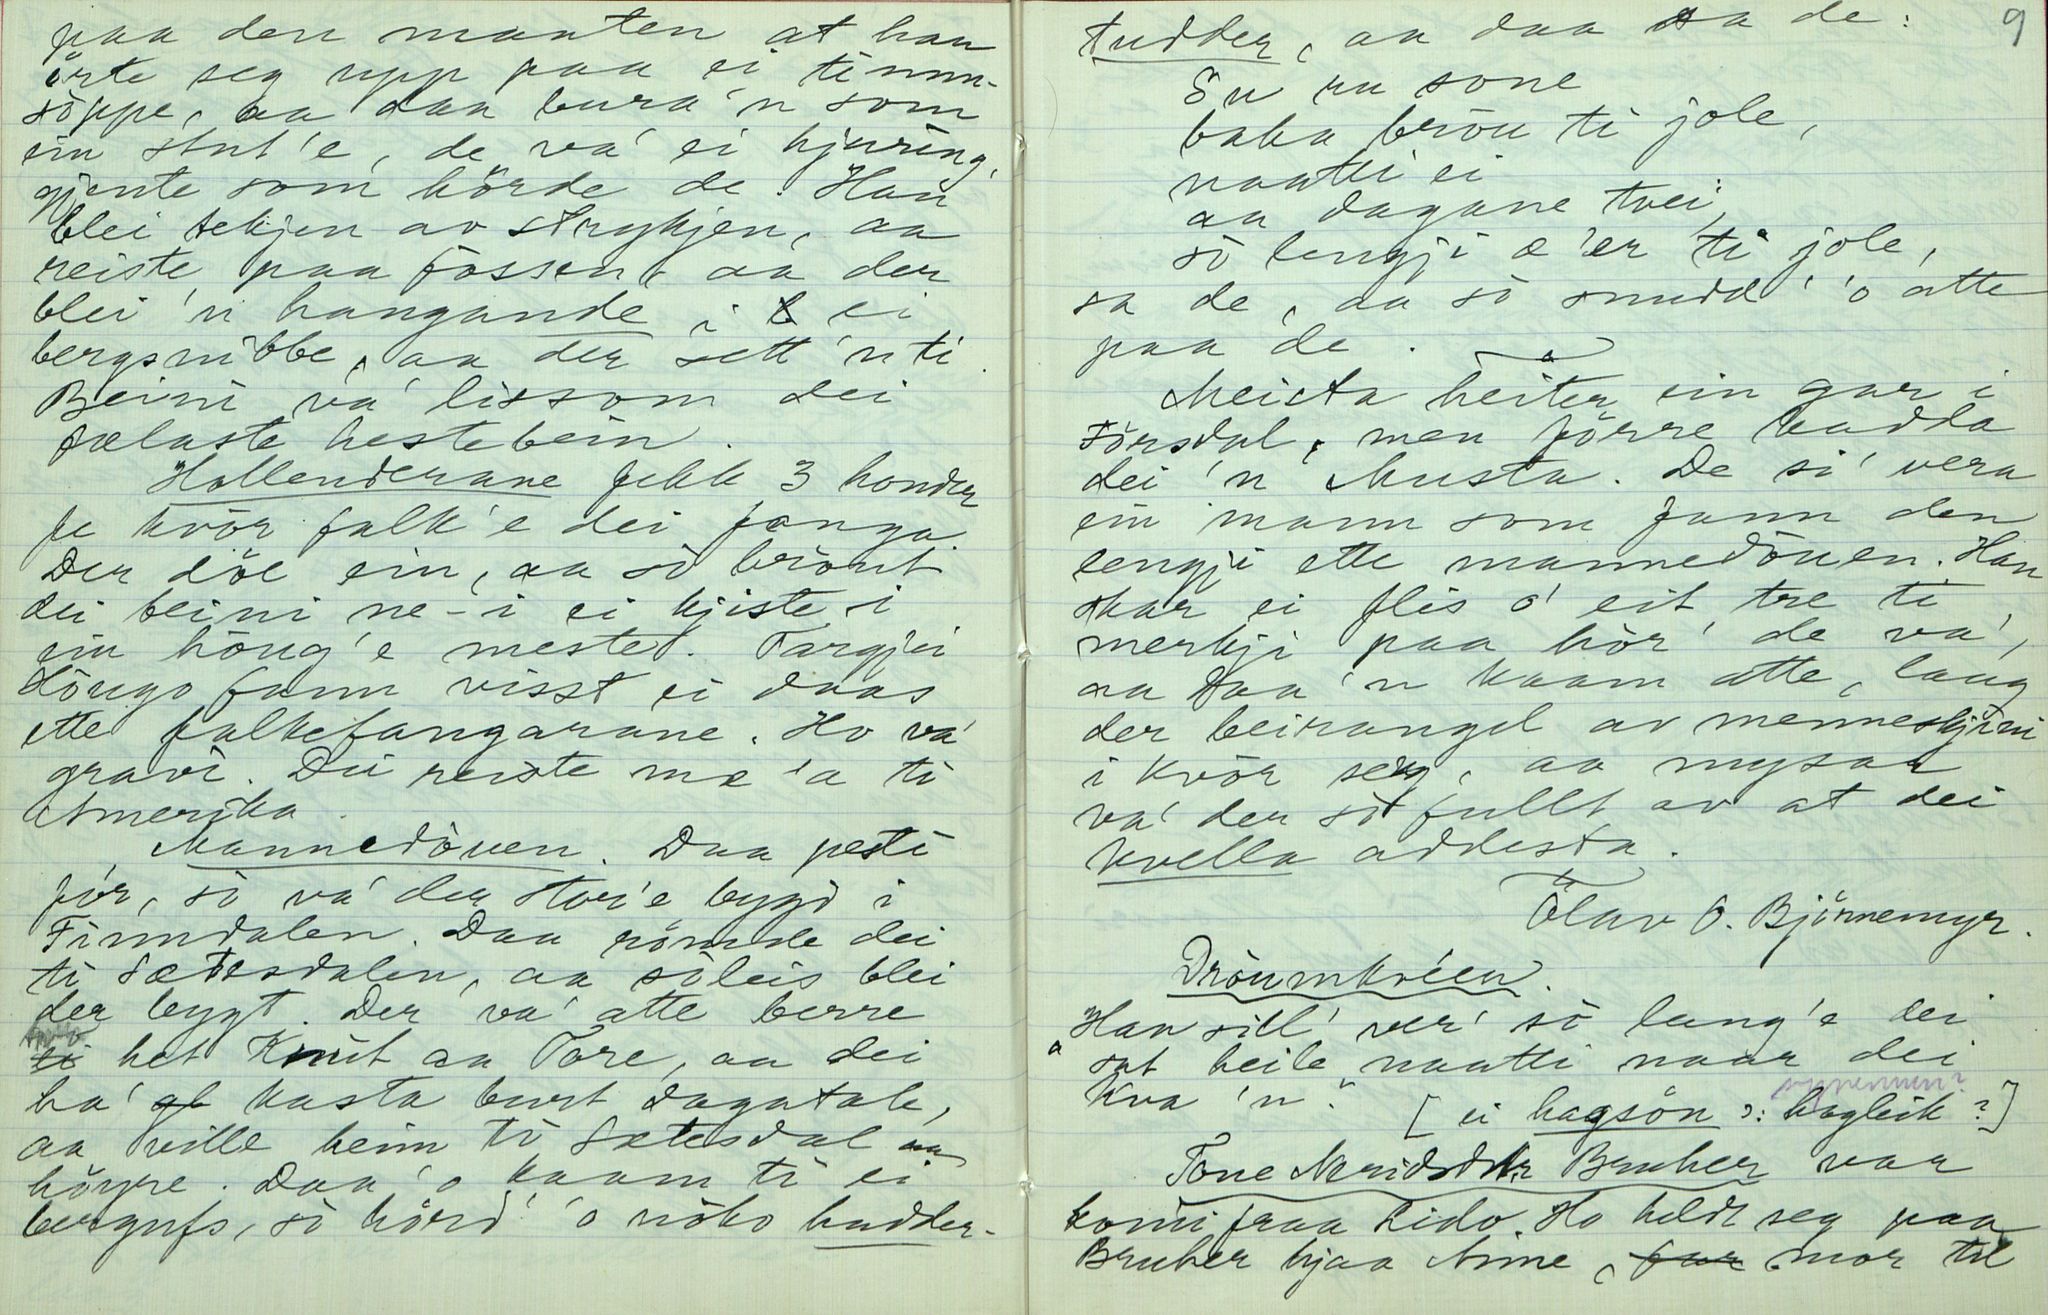 paa den maaten at han
örte seg upp paa ei timm-
söppe, aa daa bura'n som
ein stut'e, de va' ei hjuring,
gjente som hörde de. Han
blei tekjen av strykjen, aa
reiste paa fossen, aa der
blei 'n hangande i ei
bergsnibbe, aa der sett 'n ti.
Beini va' lissom dei
fælaste hestebein.
Hollenderane fekk 3 hondre
fe kvör falk'e dei fanga.
Der döe ein, aa sò bròut
dei beini ne-i ei kjiste i
ein hòug'e meste. Targjei
fann visst ei daas
ette falkefangarane. Ho va'
gravi. Dei reiste me 'a ti
Amerika.
Mannedòuen. Daa pesti
fór, sò va' der stor'e bygd i
Finndalen. Daa römde dei
ti Sætesdalen, aa sòleis blei
der bygt. Der va' atte berre
het Knut aa Tore, aa dei
ha' kasta burt dagatale,
aa ville heim ti Sætesdal aa
höyre. Daa 'o kaam ti ei
bergufs, sò hörd' 'o nòko hudder-
9
tudder, aa daa sa de:
Su ru sone
baka bròu ti jole,
naatti ei
aa dagane tvei,
sò lengji æ 'er ti jole,
sa de, aa sò snudd' 'o atte
paa de.
Meista heiter ein gar i
Försdal, men förre kadda
dei 'n Musta. De si' vera
ein mann som fann den
lengji ette mannedòuen. Han
skar ei flis o' eit tre ti
merkji paa hòr' de va',
aa daa 'n kaam atte, laag
der beinrangel av menneskjini
i kvör seng, aa mysaa
va' der sò fullt av at dei
kvella addesta.
Olav O. Björnemyr.
Dròumkvéen.
"Han sill' ver' sò lang'e dei
sat heile naatti naar dei
kva 'n".
[ei hagsòn ɔ: hagleik?]
Tone Bruher var
komi fraa Lido. Ho heldt seg paa
Bruher hjaa Anne, far mor til